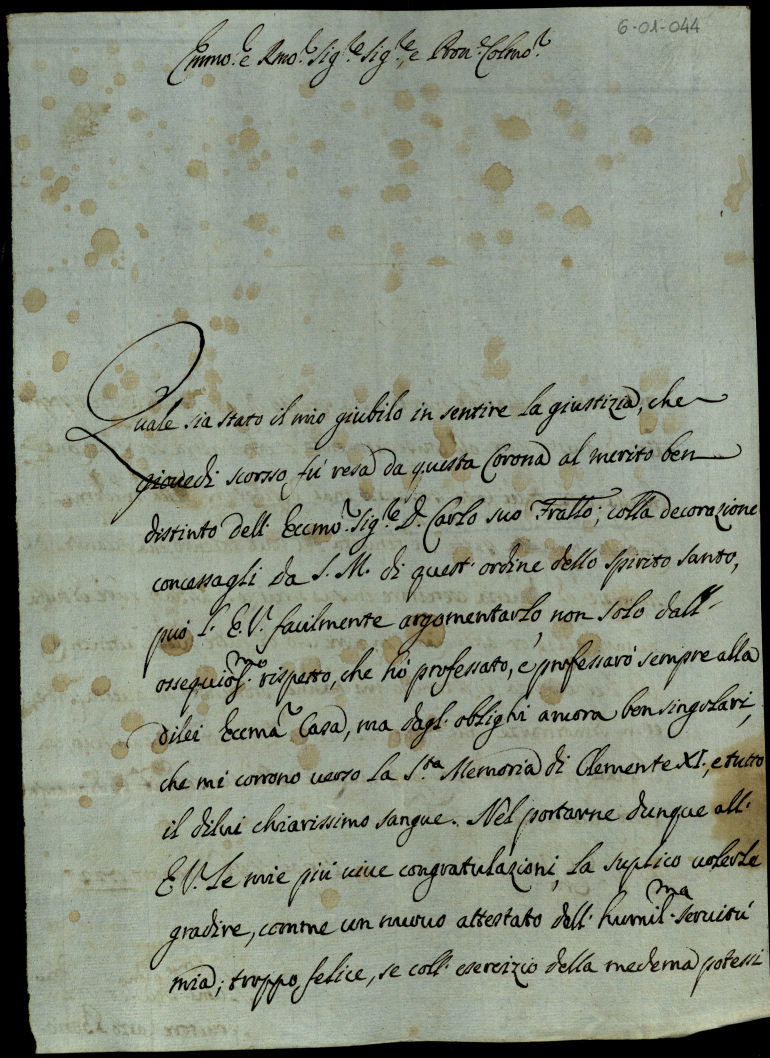 6-01-044
Emmo. e Rmo. Sigre. Sigre., e Pron. Colmo.
Quale sia stato il mio giubilo in sentire la giustizia, che
giovedi scorso fù resa da questa Corona al merito ben
distinto dell'Eccmo. Sigre. D. Carlo suo Frallo; colla decorazione
concessagli da S. M. di quest'ordine dello Spirito Santo,
può l'E.V. facilmente argomentarlo, non solo dall'
ossequiosmo. rispetto, che hò professato, e professarò sempre alla
dilei Eccma. Casa, ma dagl'oblighi ancora ben singolari,
che mi corrono verso la Sta. Memoria di Clemente XI., e tutto
il dilui chiarissimo sangue. Nel portarne dunque all'
E.V. le mie più vive congratulazioni, la suplico volerle
gradire, comme un nuovo attestato dell'humilma. servitù
mia; troppo felice, se coll'esercizio della medema potessi